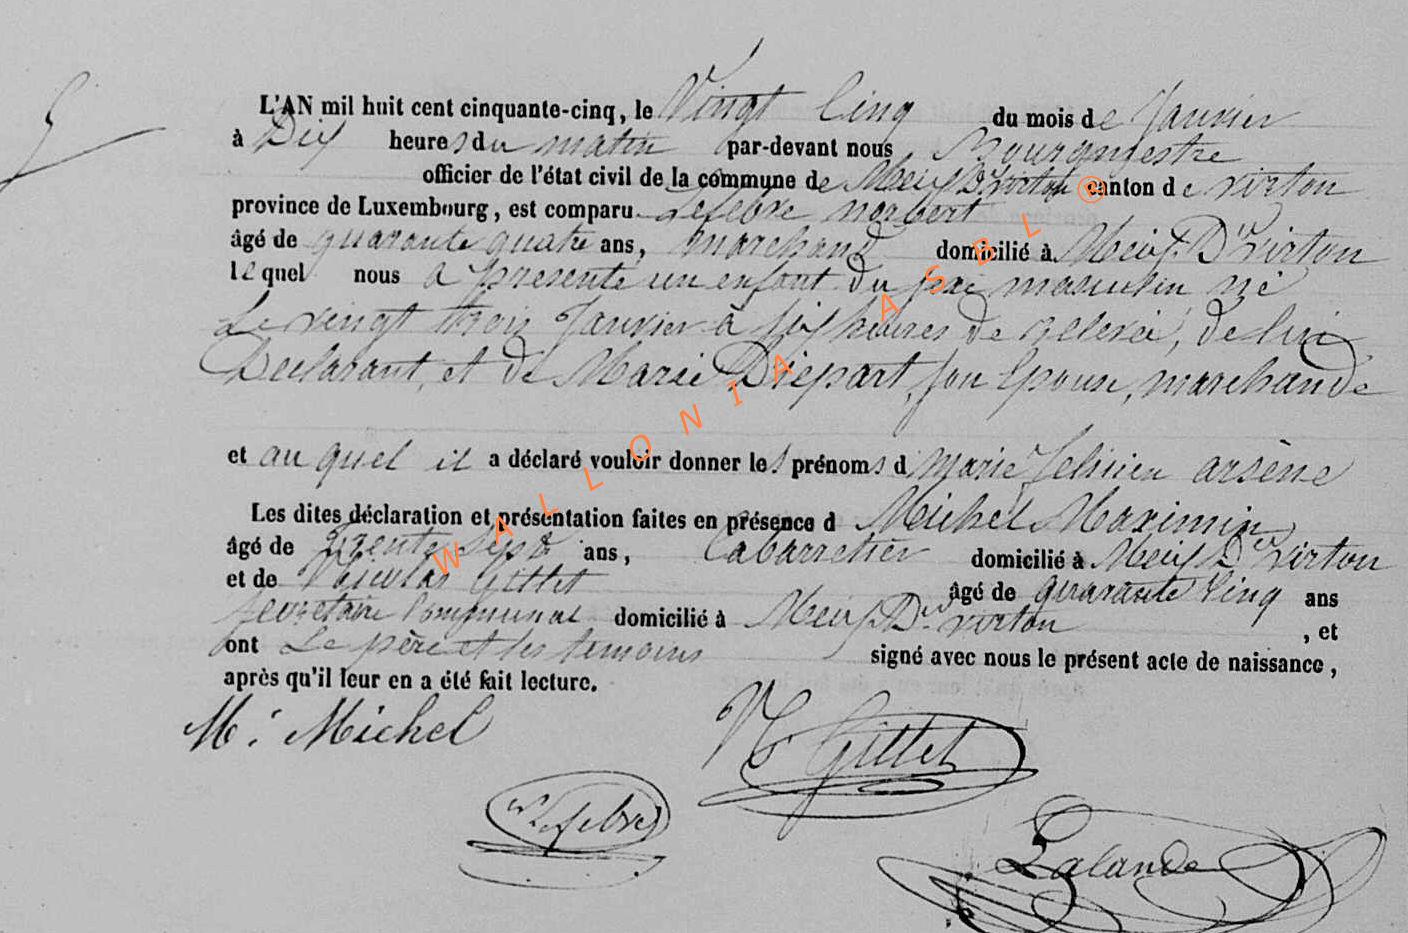 5
L'AN mil huit cent cinquante-cinq, le Vingt Cinq du mois de Janvier
à Dix heures du matin par-devant nous Bourgmestre
officier de l'état civil de la commune de Meix Dt Virton canton de virton
province de Luxembourg, est comparu Lefebvre norbert
âgé de quarante quatre ans, marchand domicilié à Meix Dt Virton
lequel nous a presenté un enfant du sexe masculin né
Le vingt trois Janvier à six heures de relevée, de lui
Declarant, et de Marie Diepart, son Epouse, marchande
et au quel il a déclaré vouloir donner les prénoms d marie felicien arsène
Les dites déclaration et présentation faites en présence d Michel Maximin
âgé de Trente Sept ans, Cabarretier domicilié à Meix Dt virton
et de Nicolas Gillet âgé de quarante Cinq ans
secretaire Communal domicilié à Meix Dt virton , et
ont Le père et les temoins signé avec nous le présent acte de naissance,
après qu'il leur en a été fait lecture.
M. Michel
N. Gillet
n Lefebvre
Lalande
WALLONIA ASBL ®